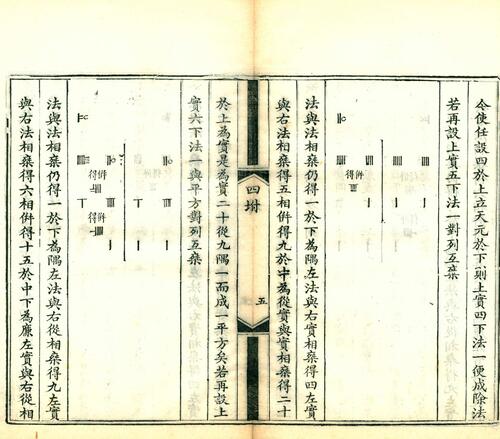 令使任設四於上立天元於下則上實四下法一便成除法
若再設上實五下法一對列互乗
得
併
法與法相乗仍得一於下為隅左法與右實相乗得四左實
與右法相乗得五相併得九於中為從實與實相乗得二十
四坿
五
於上為實是為實二十從九隅一而成一平方矣若再設上
實六下法一與平方對列互乗
併
得
併
得
法與法相乗仍得一於下為隅左法與右從相乗得九左實
與右法相乗得六相併得十五於中下為廉左實與右從相